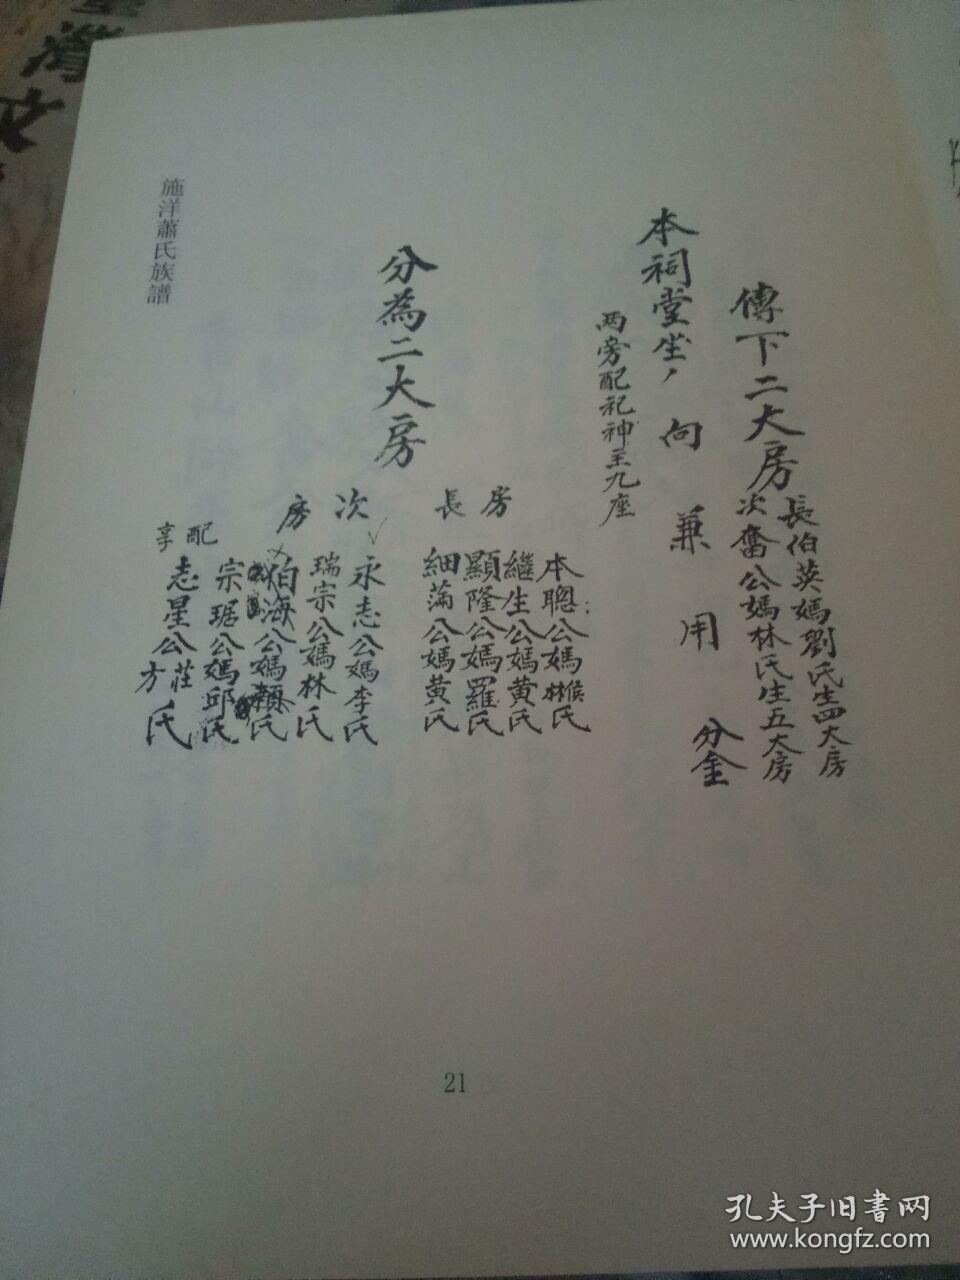 傳下二大房
長伯英媽劉氏生四大房
次奮公媽林氏生五大房
本祠堂坐 向 兼 用 分金
两旁配祀神主九座
分為二大房
長房
本聰公媽林侯氏
繼生公媽黃氏
顯隆公媽羅氏
細蒲公媽黃氏
次房
永志公媽李氏
瑞宗公媽林氏
伯海公媽賴氏
宗琚公媽邱氏
配享
志星公莊方氏
施洋蕭氏族譜
21
孔夫子旧书网
www.kongfz.com